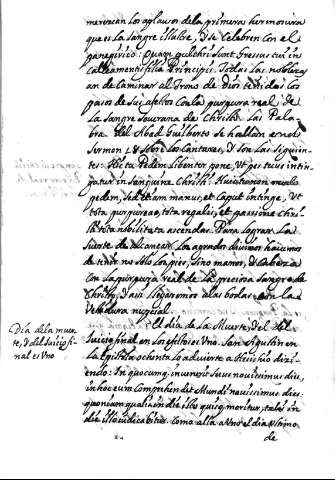 merezcan los aplausos de la primera hermosura
que es la sangre illustre, y se celebren con el
panegirico: Quam pulchri sunt Gressus tui in
calceamentis filia Principis. Todas las noblezas
an de caminar al Trono de Dios teñidas los
pasos de sus afectos con la purpura real de
la Sangre Soverana de Christo. Las Pala-
bras del Abad Guilberto se hallan en el
Sermon 48 sobre los Cantares, y son las siguien-
tes: Hic tu Pedem libenter pone, ut pes tuus intin-
gatur in sanguine Christi
pedem, sed etiam manus, et Caput intinge, ut
tota purpurea, tota regalis, et passione Chri-
sti tota nobilitata ascendas. Para lograr la
suerte de alcanzar los agrados divinos havemos
de teñir no solo los pies, sino manos, y Cabeza
con la purpura real de la preciosa Sangre de
Christo, y asi llegaremos a las bodas con la
vestidura nupcial.
Dia de la muer-
te, y del Juicio fi-
nal es uno
El dia de la Muerte, y el del
Juicio final en los efectos es Uno. San Agustin en
la Epistola ochenta lo advierte a Hesichio dizi-
endo: In quocumque invenerit suus novissimus dies,
in hoc eum comprehendet Mundi novissimus dies
quoniam qualis in die isto quisque moritur, talis in
die illo iudicabitur. Como alla a Uno el dia ultimo
de